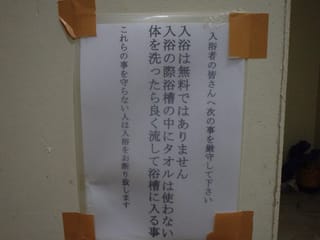 入浴者の皆さんへ次の事を厳守して下さい
入浴は無料ではありません
入浴の際浴槽の中にタオルは使わない
体を洗ったら良く流して浴槽に入る事
これらの事を守らない人は入浴をお断り致します